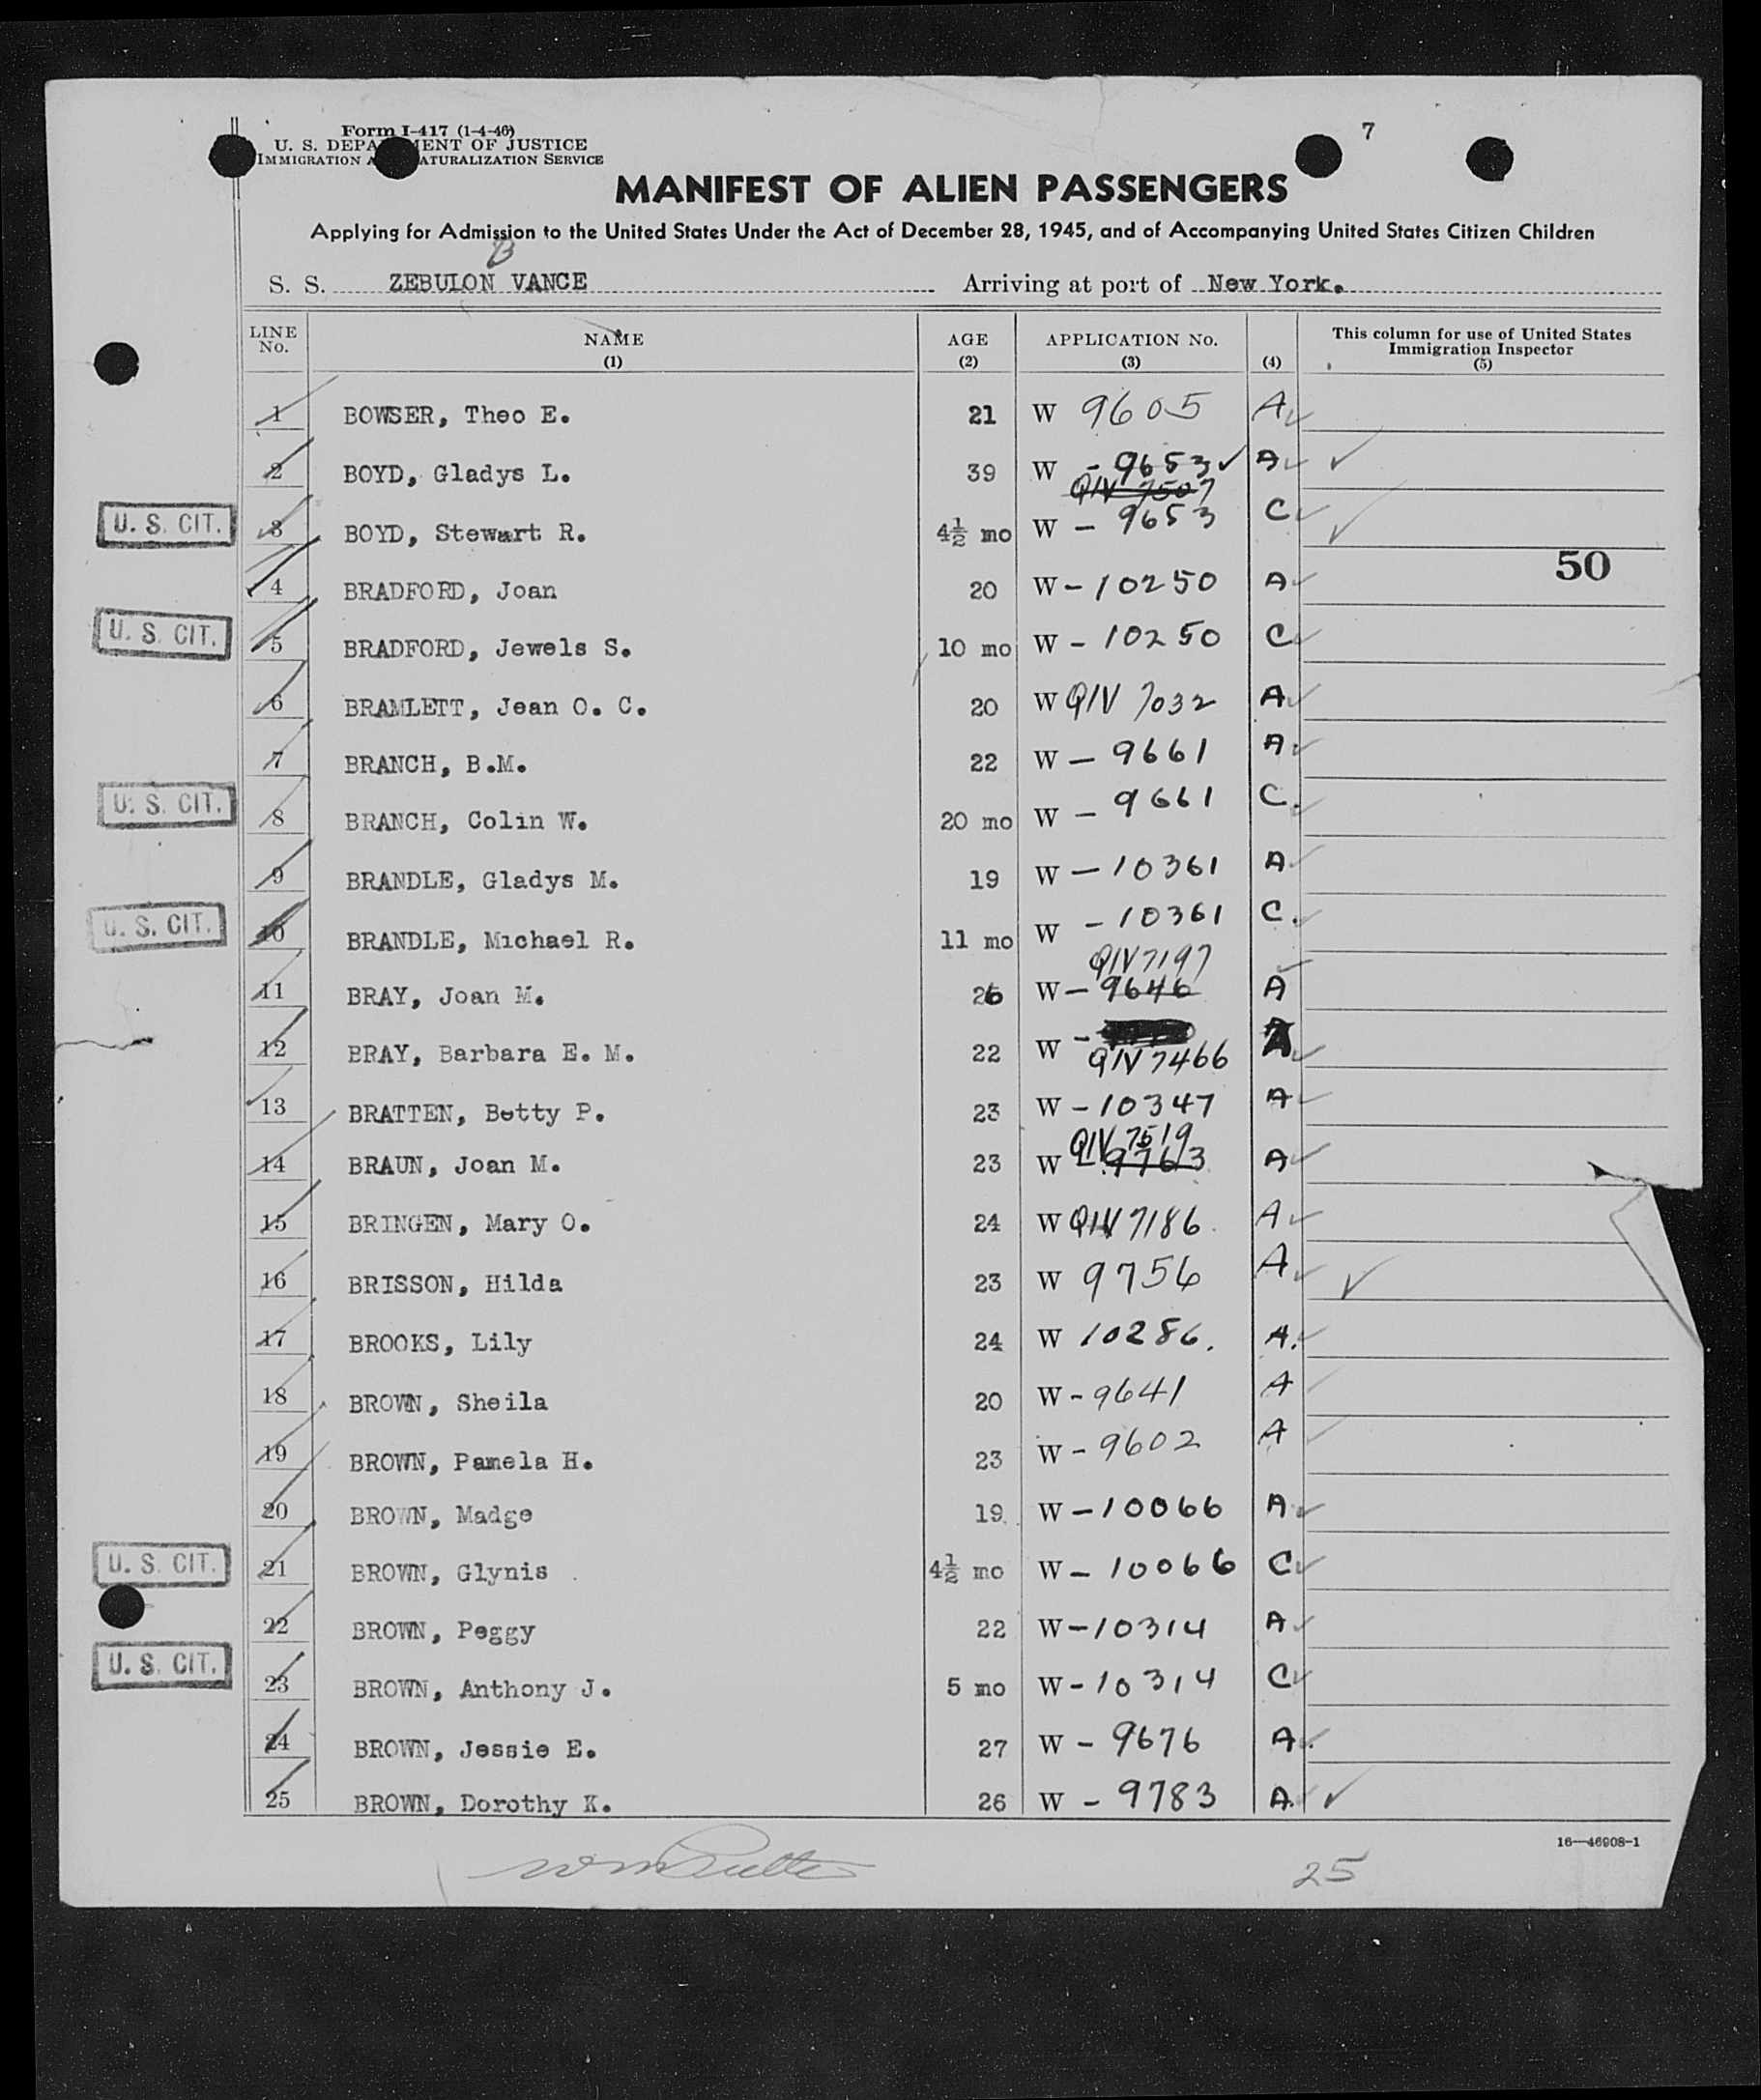 Form I-417 (1-4-46)
7
U. S. DEPA MENT OF JUSTICE
IMMIGRATION A ATURALIZATION SERVICE
MANIFEST OF ALIEN PASSENGERS
Applying for Admission to the United States Under the Act of December 28, 1945, and of Accompanying United States Citizen Children
B
S. S. ZEBULON VANCE Arriving at port of New York.
LINE No. NAME (1) AGE (2) APPLICATION No. (3) (4) This column for use of United States Immigration Inspector (5)
1 BOWSER, Theo E. 21 W 9605 A
2 BOYD, Gladys L. 39 W - 9653 A
QIV 7507
U. S. CIT. 3 BOYD, Stewart R. 4½ mo W - 9653 C
50
4 BRADFORD, Joan 20 W - 10250 A
U. S. CIT. 5 BRADFORD, Jewels S. 10 mo W - 10250 C
6 BRAMLETT, Jean O. C. 20 W QIV 7032 A
7 BRANCH, B.M. 22 W - 9661 A
U. S. CIT. 8 BRANCH, Colin W. 20 mo W - 9661 C.
9 BRANDLE, Gladys M. 19 W - 10361 A
U. S. CIT. 10 BRANDLE, Michael R. 11 mo W - 10361 C.
QIV 7197
11 BRAY, Joan M. 26 W - 9646 A
12 BRAY, Barbara E. M. 22 W - A
QIV 7466
13 BRATTEN, Betty P. 23 W - 10347 A
QIV 7519
14 BRAUN, Joan M. 23 W - 9763 A
15 BRINGEN, Mary O. 24 W QIV 7186 A
16 BRISSON, Hilda 23 W 9756 A
17 BROOKS, Lily 24 W 10286. A.
18 BROWN, Sheila 20 W - 9641 A
19 BROWN, Pamela H. 23 W - 9602 A
20 BROWN, Madge 19 W - 10066 A
U. S. CIT. 21 BROWN, Glynis 4½ mo W - 10066 C
22 BROWN, Peggy 22 W - 10314 A
U. S. CIT. 23 BROWN, Anthony J. 5 mo W - 10314 C
24 BROWN, Jessie E. 27 W - 9676 A
25 BROWN, Dorothy K. 26 W - 9783 A
16—46908-1
25